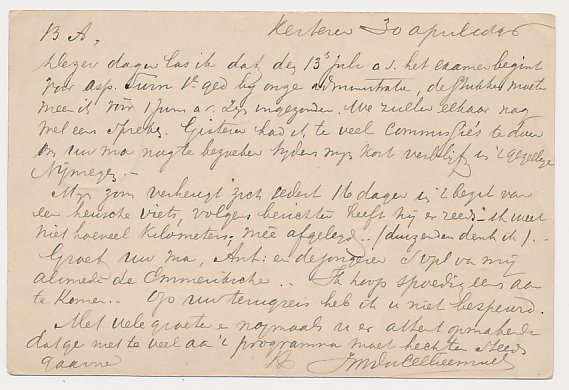 B A,
Kesteren 30 april 1896
Dezer dagen las ik dat den 13 Juli a.s. het examen begint
voor asp. 1e ged bij onze administratie, de stukken moeten
meen ik vóór 1 Juni a.s. zijn ingezonden. We zullen elkaar nog
wel eens spreken. Gisteren had ik te veel commissies te doen
om uw ma nog te bezoeken tijdens mijn kort verblijf in 't gezellige
Nijmegen.-
Mijn zoon verheugt zich sedert 16 dagen in 't bezit van
een heusche viets, volgens berichten heeft hij er reeds ik weet
niet hoeveel kilometers mêe afgelegd.. (duizenden denk ik).-
Groet uw ma, Ant: en de jongere van mij
alsmede de .. Ik hoop spoedig eens aan
te komen.- Op uw terugreis heb ik u niet bespeurd.
Met vele groeten en nogmaals u er attent op makende
dat ge niet te veel aan 't programma moet hechten steeds
gaarne